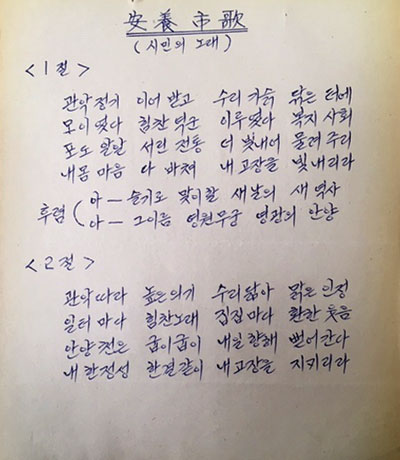 安養市歌
(시민의 노래)
<1절>
관악정기 이어 받고 수리 기슭 닦은 터에
모이었다 힘찬 역군 이루었다 복지 사회
포도 알알 서린 전통 더 빛내어 물려 주리
내몸 마음 다 바쳐 내 고장을 빛내리라
후렴 ( 아 — 슬기로 맞이할 새날의 새 역사
아 — 그이름 영원무궁 영광의 안양
<2절>
관악따라 높은 의기 수리 닮아 맑은 인정
일터 마다 힘찬노래 집집 마다 환한 웃음
안양천은 굽이굽이 내일 향해 뻗어간다
내 한정성 한결같이 내 고장을 지키리라